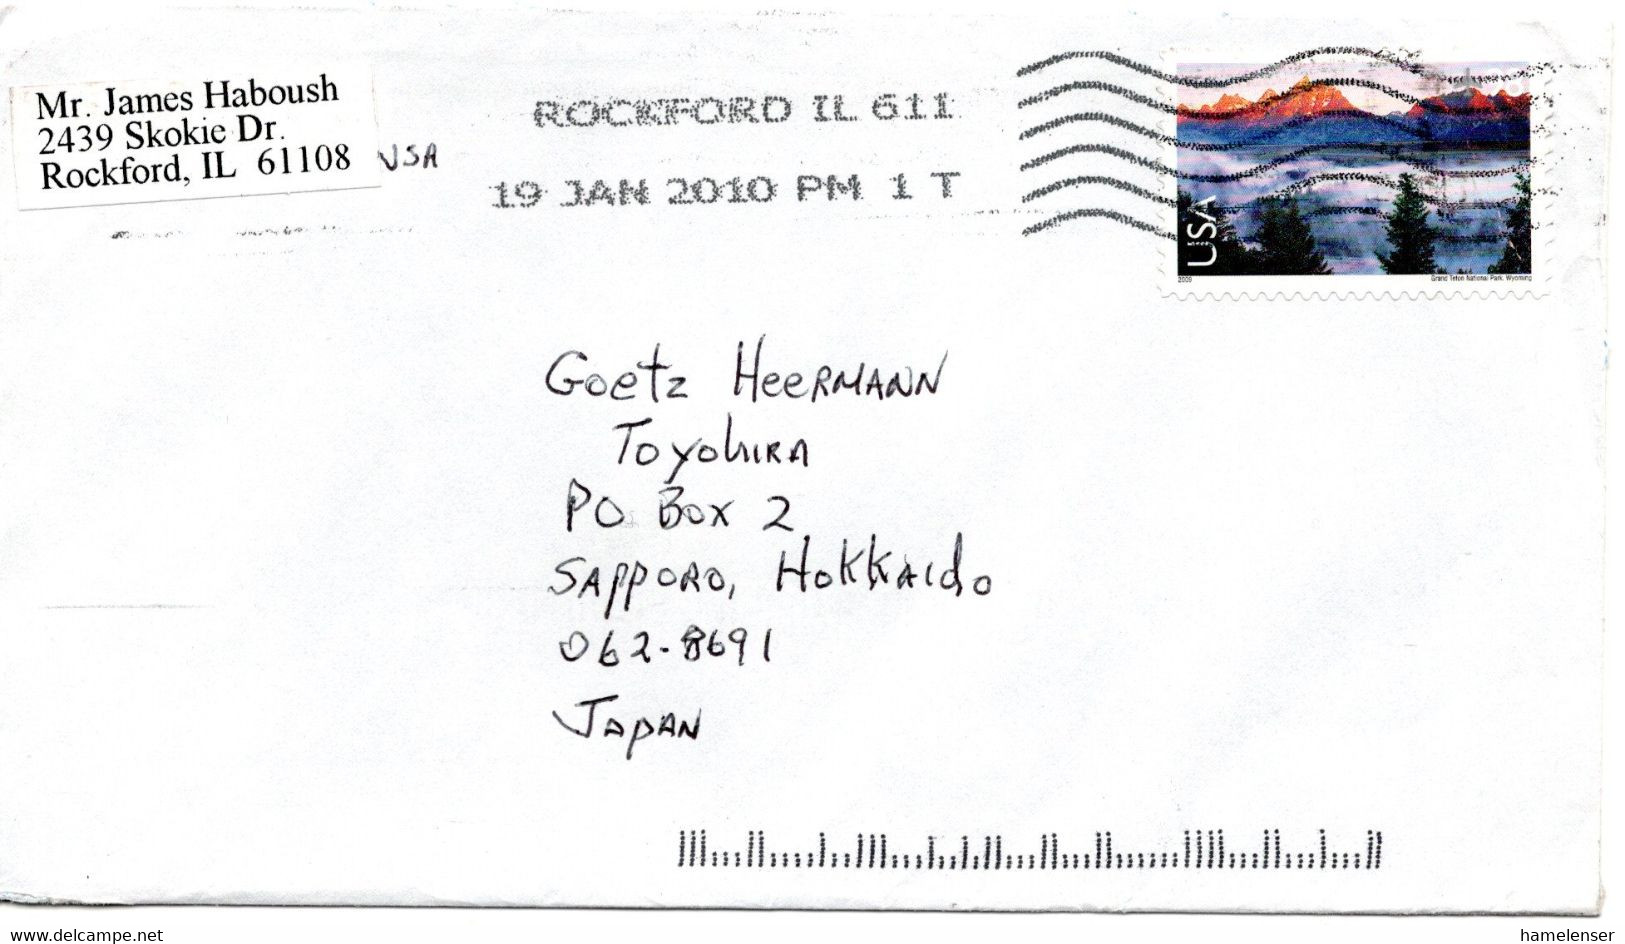 Mr. James Haboush
2439 Skokie Dr.
Rockford, IL 61108 USA
ROCKFORD IL 611
19 JAN 2010 PM 1 T
USA
2009
Grand Teton National Park, Wyoming
Goetz Heermann
Toyohira
PO Box 2
Sapporo, Hokkaido
062-8691
Japan
www.delcampe.net
hamelenser